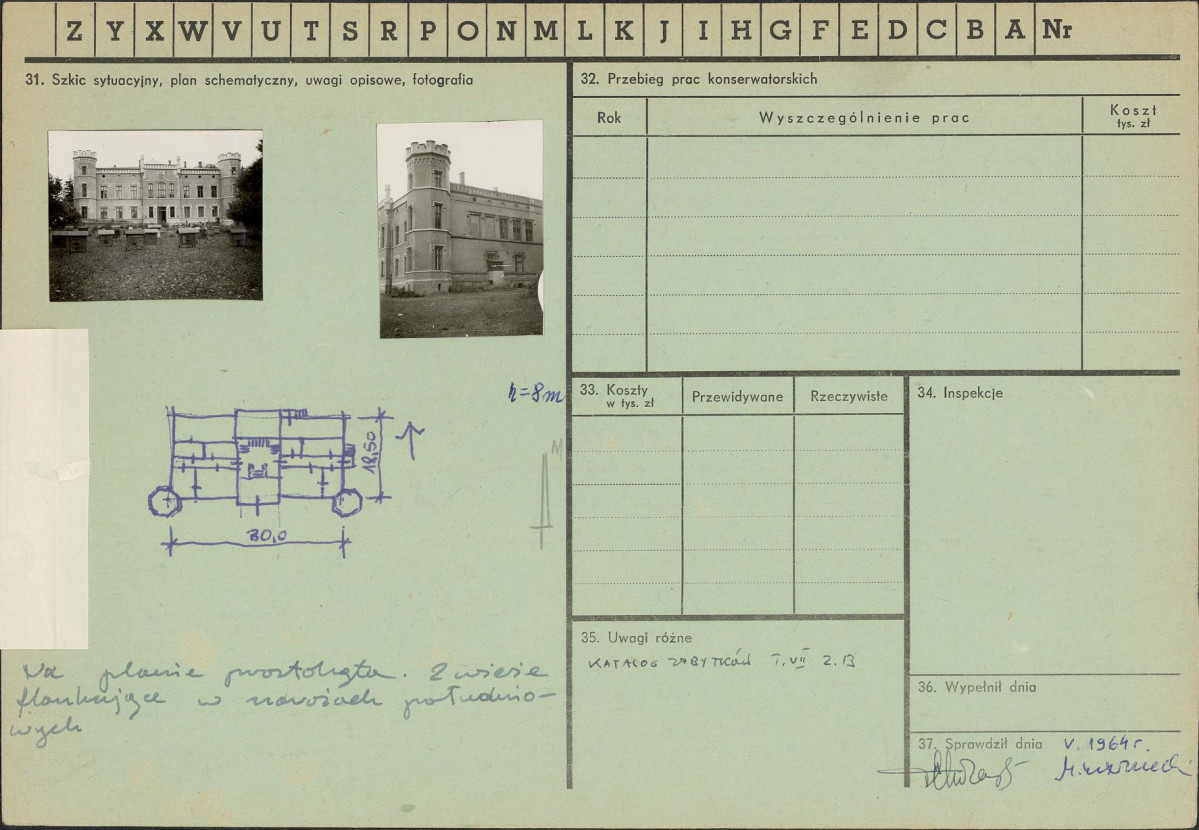 Z Y X W V U T S R P O N M L K J I H G F E D C B A Nr
31. Szkic sytuacyjny, plan schematyczny, uwagi opisowe, fotografia
h=8m
18,50
30,0
M
Na planie prostokąta. 2 wieże
flankujące w narożach południo-
wych
32. Przebieg prac konserwatorskich
Rok
Wyszczególnienie prac
Koszt
tys. zł
33. Koszty
w tys. zł
Przewidywane
Rzeczywiste
34. Inspekcje
35. Uwagi różne
KATALOG ZABYTKÓW T. VII Z. 13
36. Wypełnił dnia
37. Sprawdził dnia V. 1964 r.